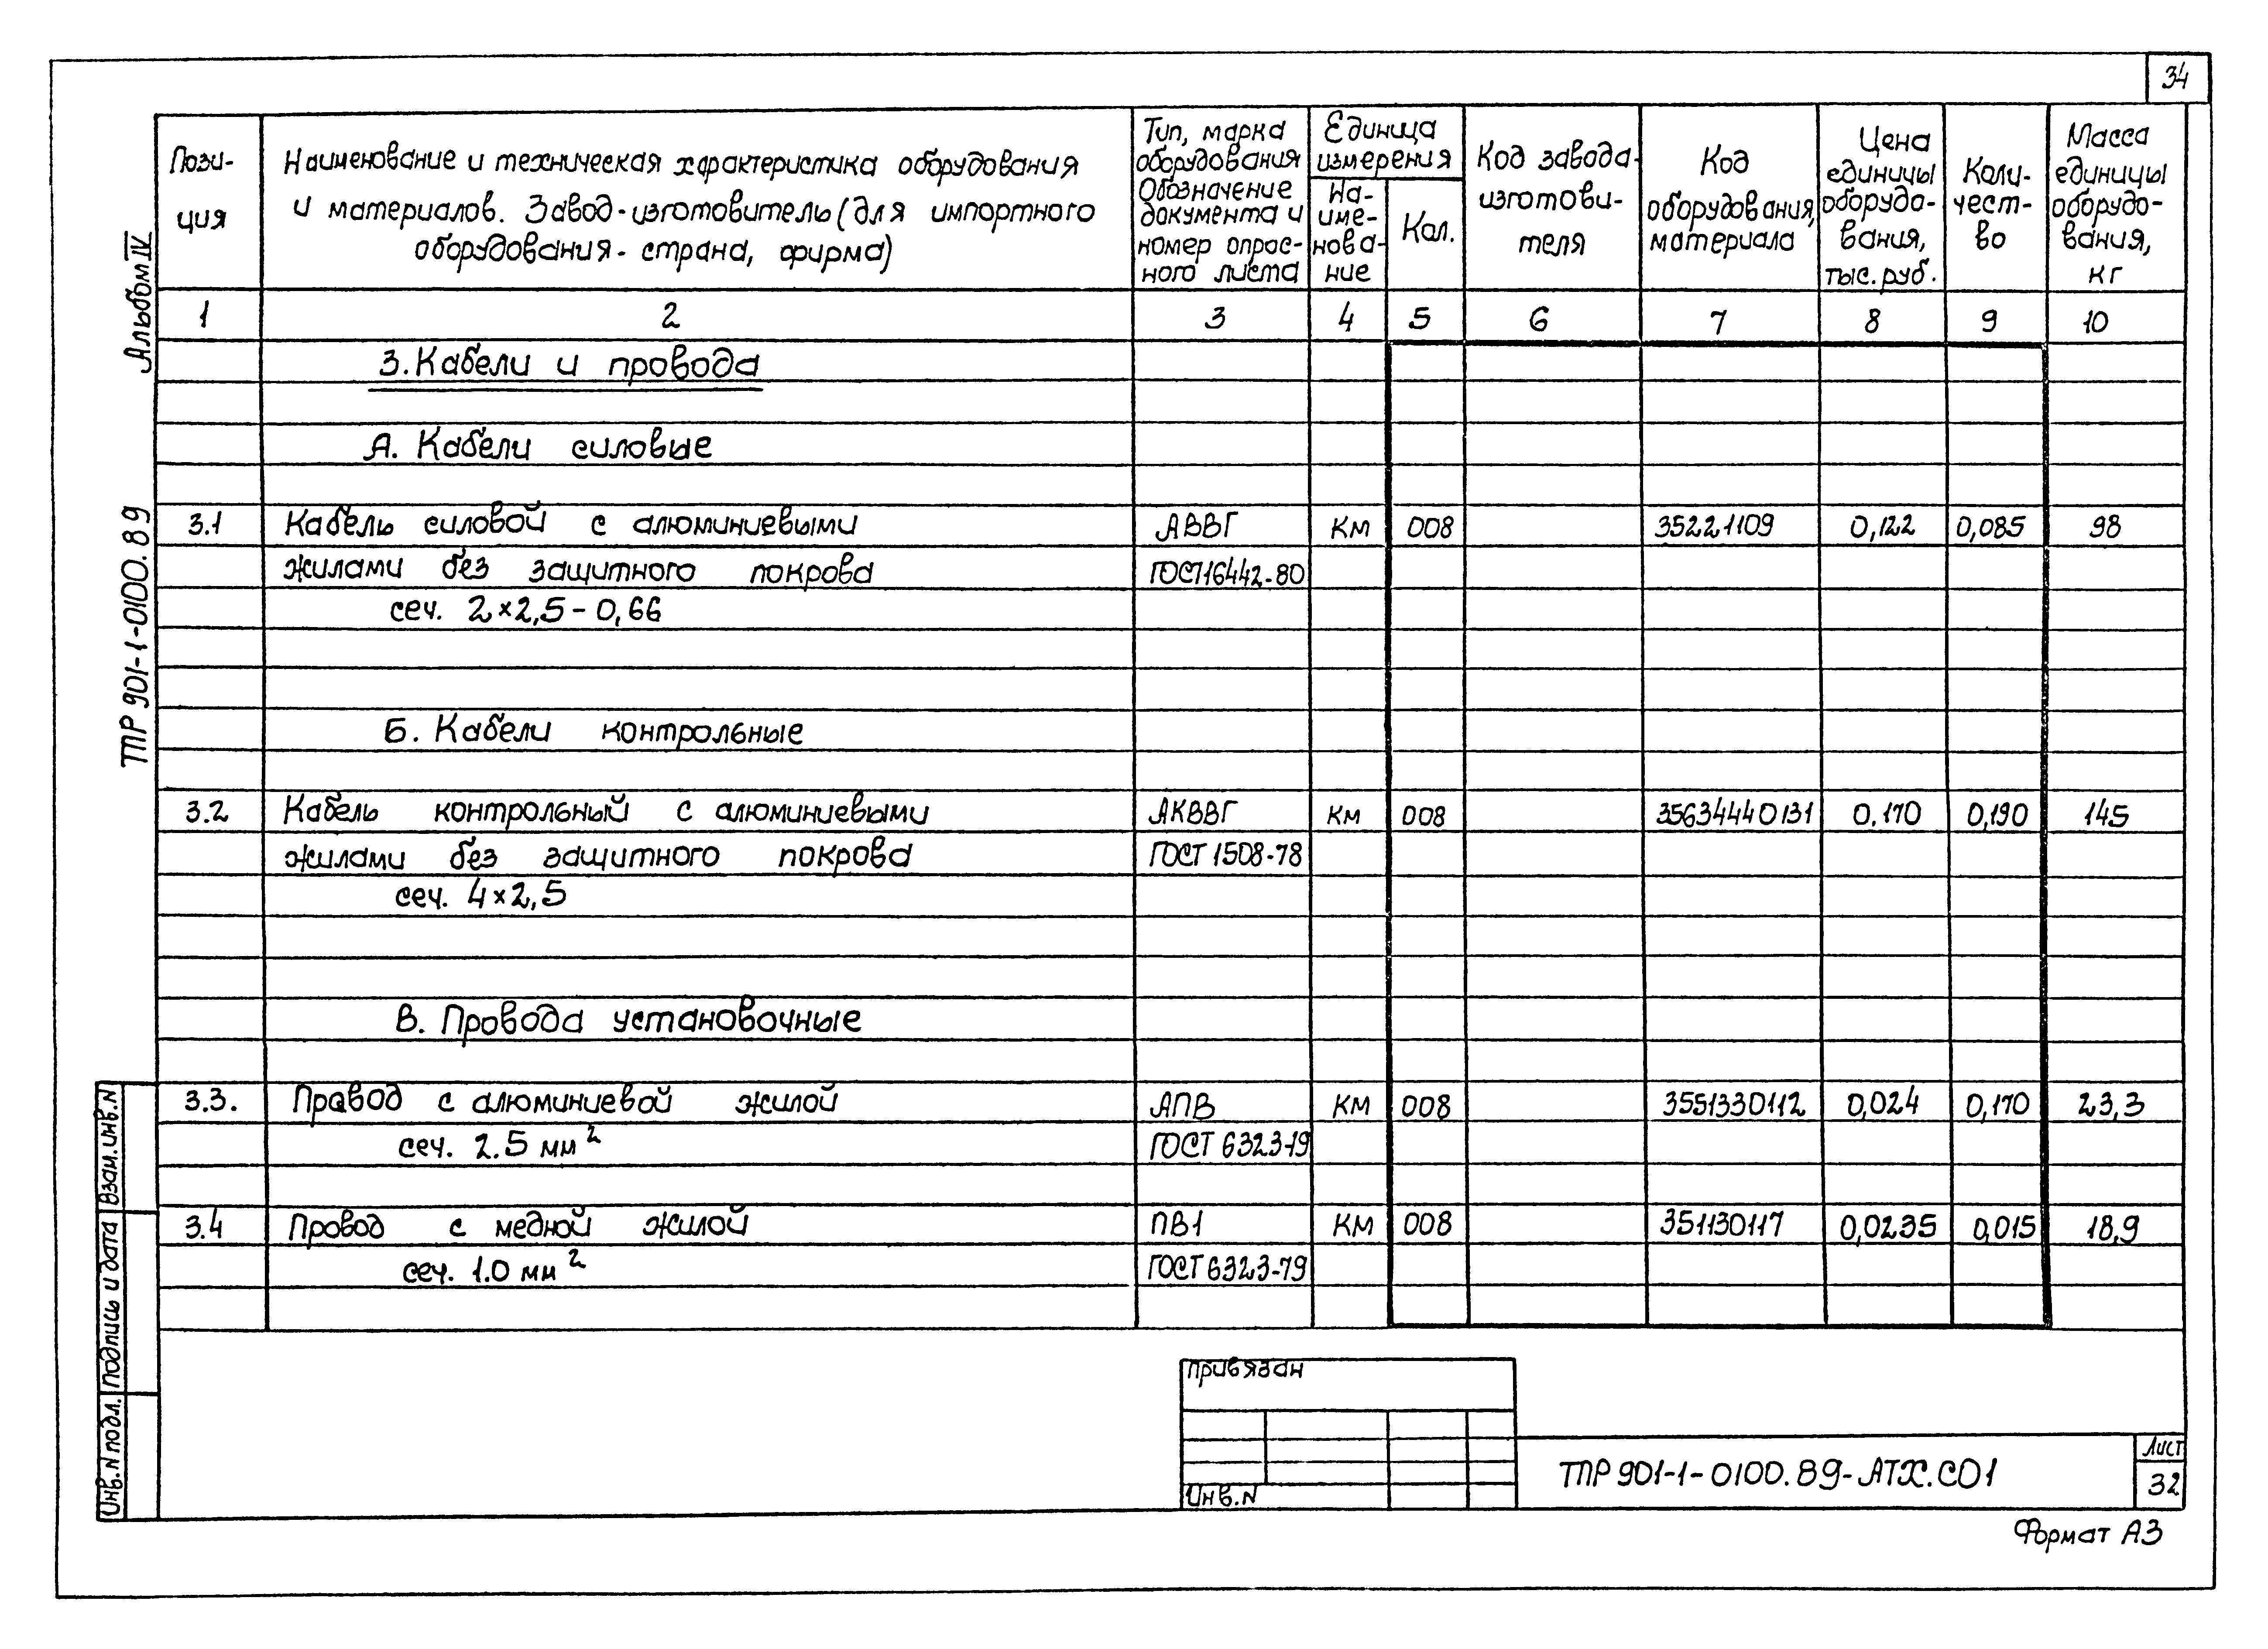 34
Пози-
ция
Наименование и техническая характеристика оборудования
и материалов. Завод-изготовитель (для импортного
оборудования - страна, фирма)
Тип, марка
оборудования
Обозначение
документа и
номер опрос-
ного листа
Единица
измерения
На-
име-
нова-
ние
Кол.
Код завода-
изготови-
теля
Код
оборудования,
материала
Цена
единицы
оборудо-
вания,
тыс. руб.
Коли-
чест-
во
Масса
единицы
оборудо-
вания,
кг
1 2 3 4 5 6 7 8 9 10
3. Кабели и провода
А. Кабели силовые
3.1 Кабель силовой с алюминиевыми АВВГ КМ 008 35221109 0,122 0,085 98
жилами без защитного покрова ГОСТ16442-80
сеч. 2×2,5-0,66
Б. Кабели контрольные
3.2 Кабель контрольный с алюминиевыми АКВВГ КМ 008 35634440131 0.170 0,190 145
жилами без защитного покрова ГОСТ 1508-78
сеч. 4×2,5
В. Провода установочные
3.3. Провод с алюминиевой жилой АПВ КМ 008 3551330112 0,024 0,170 23,3
сеч. 2.5 мм² ГОСТ 6323-79
3.4 Провод с медной жилой ПВ1 КМ 008 351130117 0,0235 0,015 18,9
сеч. 1.0 мм² ГОСТ 6323-79
Альбом IV
ТПР 901-1-0100.89
Взам. инв. N
Подпись и дата
Инв. N подл.
Привязан
Инв. N
ТПР 901-1-0100.89-АТХ.СО1
Лист
32
Формат А3